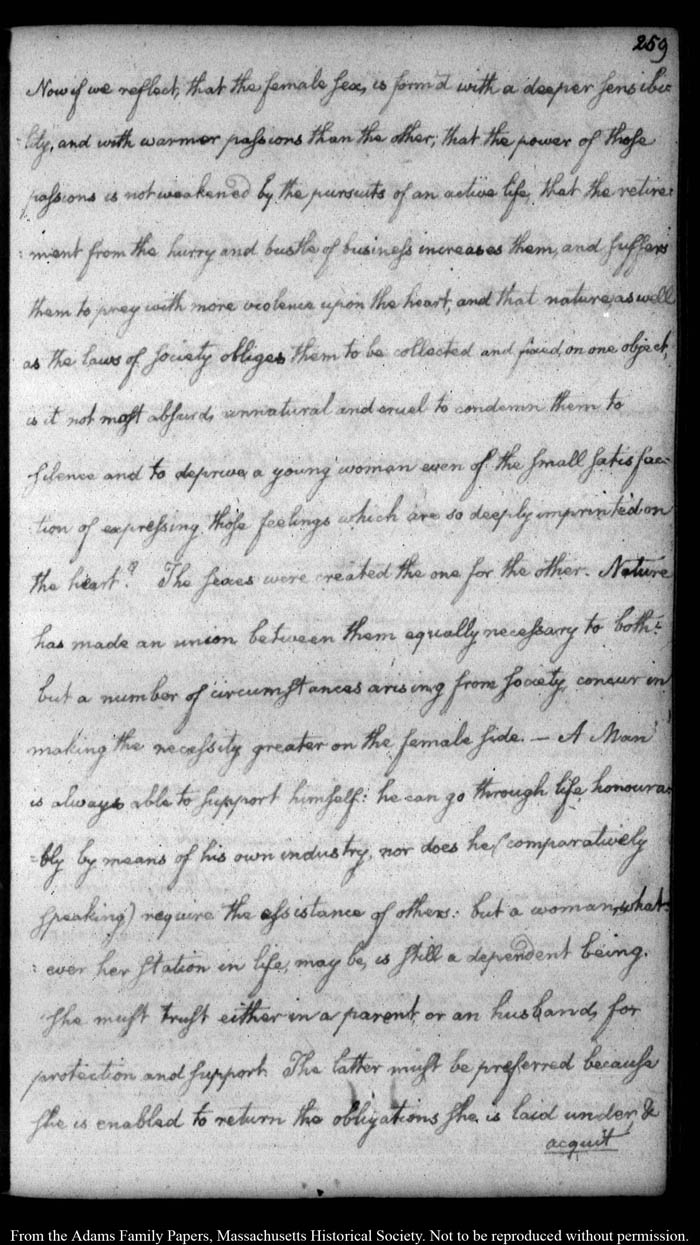 259
Now if we reflect, that the female sex, is form'd with a deeper sensibi-
lity, and with warmer passions than the other; that the power of those
passions is not weakened by the pursuits of an active life, that the retire-
:ment from the hurry and bustle of business increases them, and suffers
them to prey with more violence upon the heart, and that nature, as well
as the laws of society obliges them to be collected and fixed, on one object,
is it not most absurd, unnatural and cruel to condemn them to
silence and to deprive a young woman even of the small satisfac-
tion of expressing those feelings which are so deeply imprinted on
the heart? The sexes were created the one for the other. Nature
has made an union between them equally necessary to both:
but a number of circumstances arising from society, concur in
making the necessity greater on the female side. — A Man
is always able to support himself: he can go through life honoura-
-bly by means of his own industry, nor does he (comparatively
speaking) require the assistance of others: but a woman, what-
:ever her station in life, may be, is still a dependent being.
She must trust either in a parent, or an husband, for
protection and support. The latter must be preferred because
she is enabled to return the obligations she is laid under, &
acquit
From the Adams Family Papers, Massachusetts Historical Society. Not to be reproduced without permission.